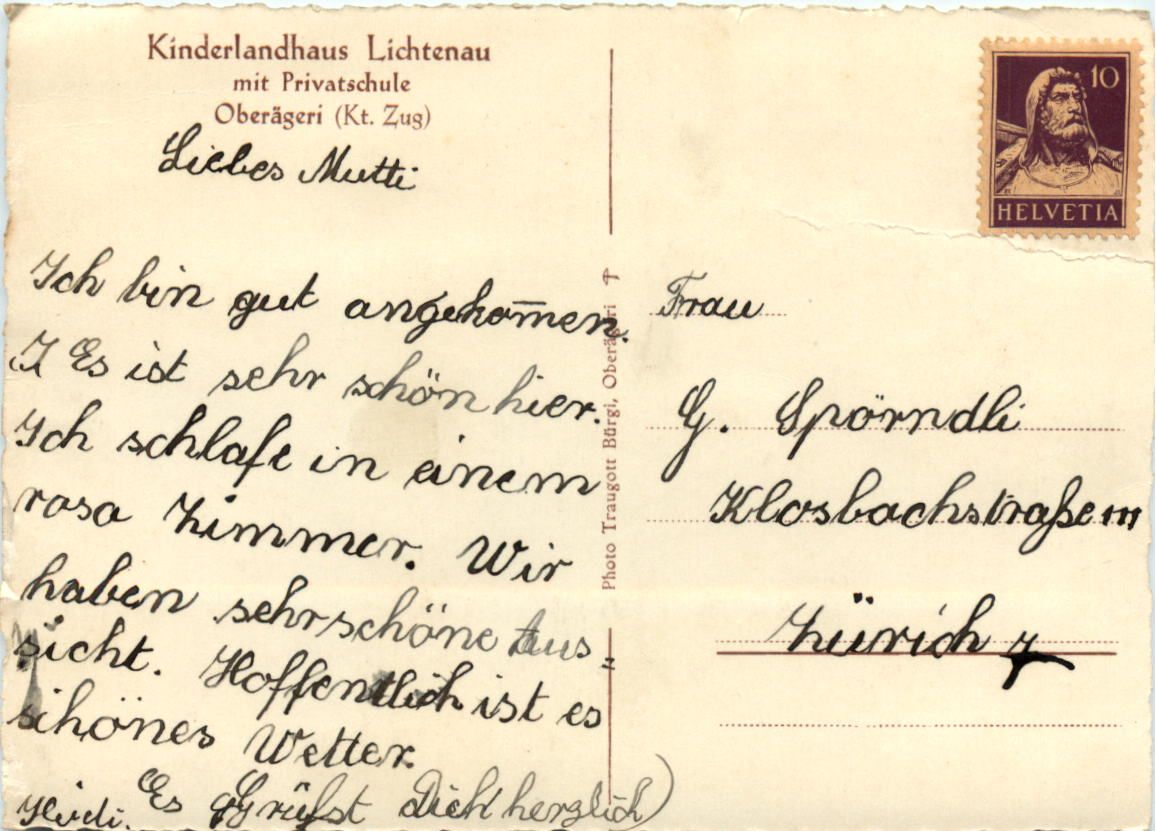 Kinderlandhaus Lichtenau
mit Privatschule
Oberägeri (Kt. Zug)
Liebes Mutti
Ich bin gut angekom̅en.
I Es ist sehr schön hier.
Ich schlafe in einem
rosa Zimmer. Wir
haben sehr schöne Aus=
sicht. Hoffentlich ist es
schönes Wetter.
Es Grüßst Dich herzlich)
Heidi.
Photo Traugott Bürgi, Oberägeri
10
HELVETIA
Frau
G. Spörndli
Klosbachstraße 111
Zürich 7